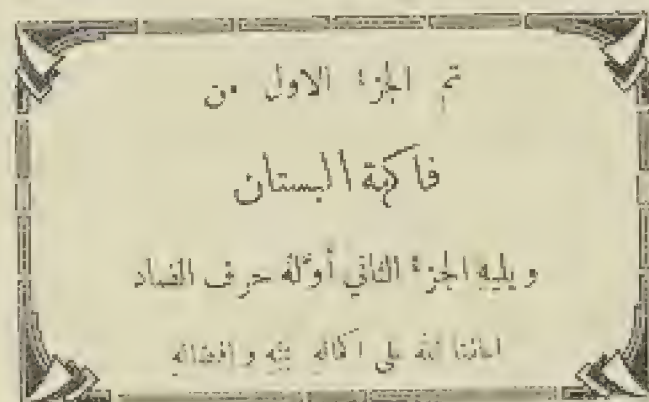 تم الجزء الاول من
فاكهة البستان
ويليه الجزء الثاني أوّله حرف الضاد
اعاننا الله على اكماله بمنه وافضاله